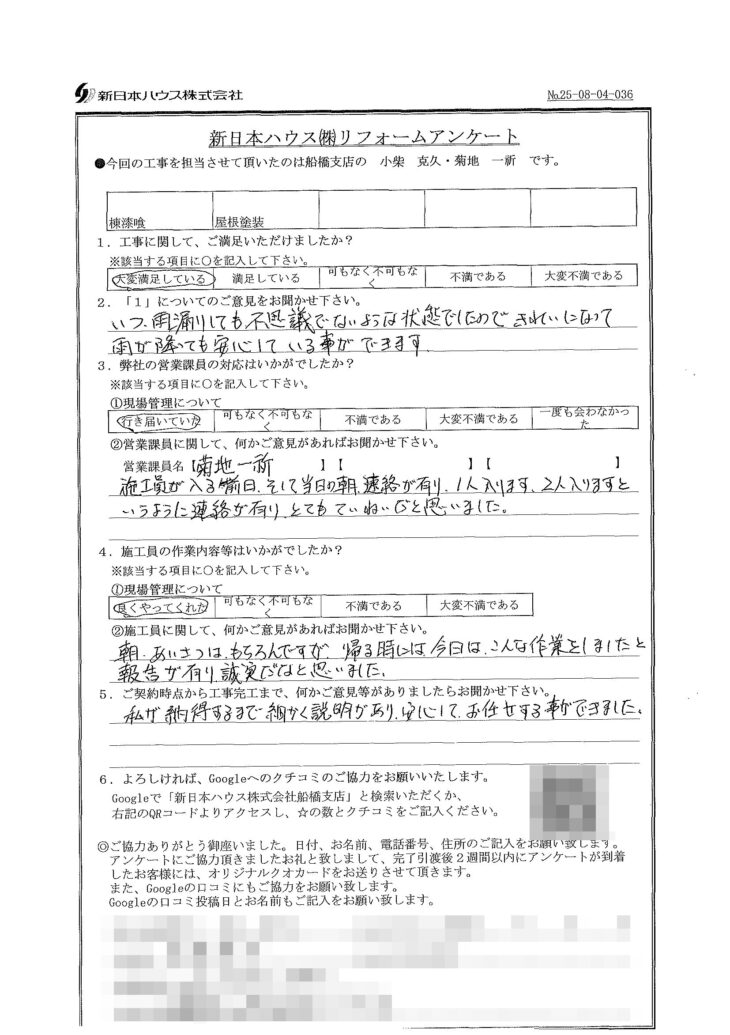 新日本ハウス株式会社
No.25-08-04-036
新日本ハウス㈱リフォームアンケート
●今回の工事を担当させて頂いたのは船橋支店の 小柴 克久・菊地 一祈 です。
棟漆喰 屋根塗装
1．工事に関して、ご満足いただけましたか？
※該当する項目に○を記入して下さい。
大変満足している 満足している 可もなく不可もなく 不満である 大変不満である
2．「1」についてのご意見をお聞かせ下さい。
いつ、雨漏りしても不思議でないような状態でしたのできれいになって
雨が降っても安心している事ができます。
3．弊社の営業課員の対応はいかがでしたか？
※該当する項目に○を記入して下さい。
①現場管理について
行き届いていた 可もなく不可もなく 不満である 大変不満である 一度も会わなかった
②営業課員に関して、何かご意見があればお聞かせ下さい。
営業課員名【菊地一祈 】【 】【 】
施工員が入る前日、そして当日の朝、連絡が有り、1人入ります、2人入りますと
いうように連絡が有り、とてもていねいだと思いました。
4．施工員の作業内容等はいかがでしたか？
※該当する項目に○を記入して下さい。
①現場管理について
良くやってくれた 可もなく不可もなく 不満である 大変不満である
②施工員に関して、何かご意見があればお聞かせ下さい。
朝、あいさつは、もちろんですが、帰る時には、今日は、こんな作業をしましたと
報告が有り、誠実だなと思いました。
5．ご契約時点から工事完工まで、何かご意見等がありましたらお聞かせ下さい。
私が納得するまで細かく説明があり、安心して、お任せする事ができました。
6．よろしければ、Googleへのクチコミのご協力をお願いいたします。
Googleで「新日本ハウス株式会社船橋支店」と検索いただくか、
右記のQRコードよりアクセスし、☆の数とクチコミをご記入ください。
◎ご協力ありがとう御座いました。日付、お名前、電話番号、住所のご記入をお願い致します。
アンケートにご協力頂きましたお礼と致しまして、完了引渡後２週間以内にアンケートが到着
したお客様には、オリジナルクオカードをお送りさせて頂きます。
また、Googleの口コミにもご協力をお願い致します。
Googleの口コミ投稿日とお名前もご記入をお願い致します。